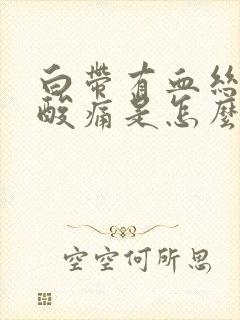 白帶有血絲
酸痛是怎麼
空空何所思